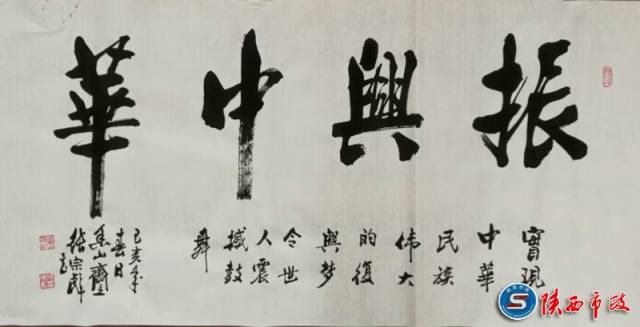 振興中華
實現
中華
民族
伟大
的復
興梦
令世
人震
撼鼓
舞
己亥年
春日
陕西市政